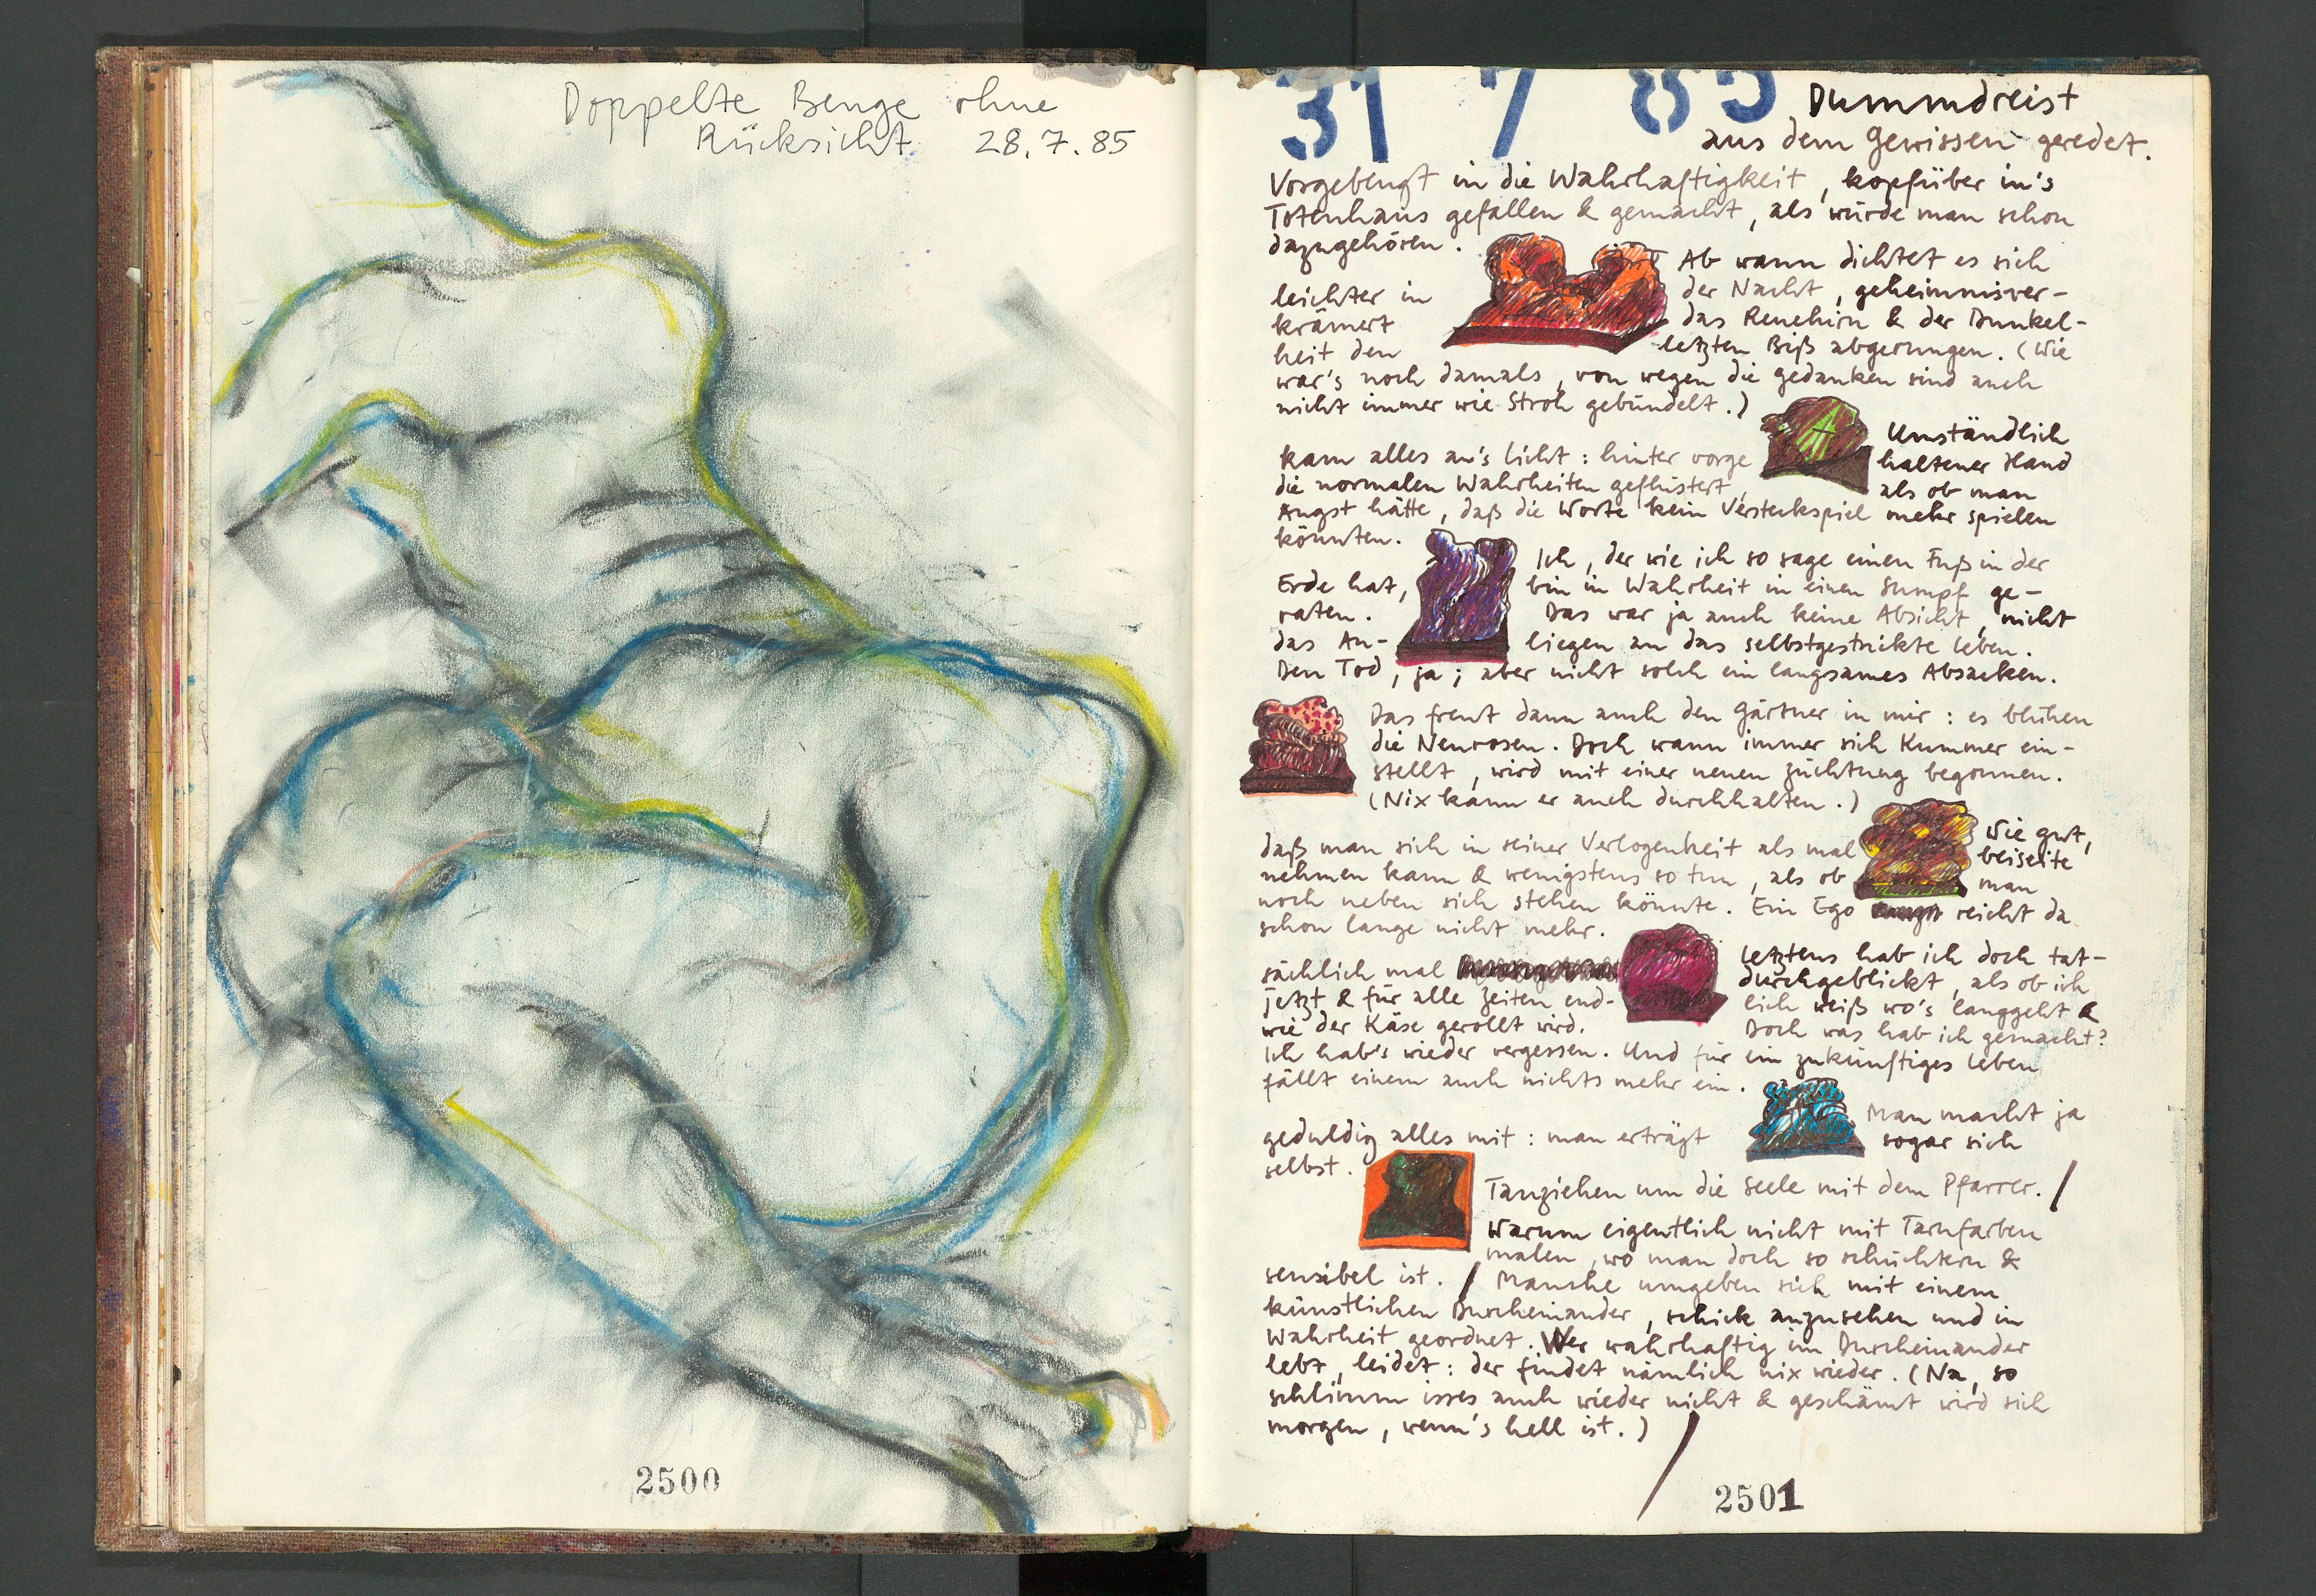 Doppelte Beuge ohne
Rücksicht 28.7.85
2500
31 7 85 Dummdreist
aus dem Gewissen geredet.
Vorgebeugt in die Wahrhaftigkeit, kopfüber in's
Totenhaus gefallen & gemacht, als würde man schon
dazugehören.
Ab wann dichtet es sich
leichter in der Nacht, geheimnisver-
krämert das Renehirn & der Dunkel-
heit den letzten Biß abgerungen. (Wie
war's noch damals, von wegen die gedanken sind auch
nicht immer wie Stroh gebündelt.)
Umständlich
kam alles an's licht: hinter vorge haltener Hand
die normalen Wahrheiten geflüstert, als ob man
Angst hätte, daß die Worte kein Versteckspiel mehr spielen
könnten.
Ich, der wie ich so sage einen Fuß in der
Erde hat, bin in Wahrheit in einen Sumpf ge-
raten. Das war ja auch keine Absicht, nicht
das An- liegen an das selbstgestrickte leben.
Den Tod, ja; aber nicht solch ein langsames Absacken.
Das freut dann auch den Gärtner in mir: es blühen
die Neurosen. Doch wann immer sich Kummer ein-
stellt, wird mit einer neuen züchtung begonnen.
(Nix kann er auch durchhalten.)
Wie gut,
daß man sich in seiner Verlogenheit als mal beiseite
nehmen kann & wenigstens so tun, als ob man
noch neben sich stehen könnte. Ein Ego reicht da
schon lange nicht mehr.
letztens hab ich doch tat-
sächlich mal durchgeblickt, als ob ich
jetzt & für alle Zeiten end- lich weiß wo's langgeht &
wie der Käse gerollt wird. Doch was hab ich gemacht?
Ich hab's wieder vergessen. Und für ein zukünftiges leben
fällt einem auch nichts mehr ein.
Man macht ja
geduldig alles mit: man erträgt sogar sich
selbst.
Tauziehen um die Seele mit dem Pfarrer. /
Warum eigentlich nicht mit Tarnfarben
malen, wo man doch so schüchtern &
sensibel ist. / Manche umgeben sich mit einem
künstlichen Durcheinander, schick anzusehen und in
Wahrheit geordnet. Wer wahrhaftig im Durcheinander
lebt, leidet: der findet nämlich nix wieder. (Na, so
schlimm isses auch wieder nicht & geschämt wird sich
morgen, wenn's hell ist.)
2501